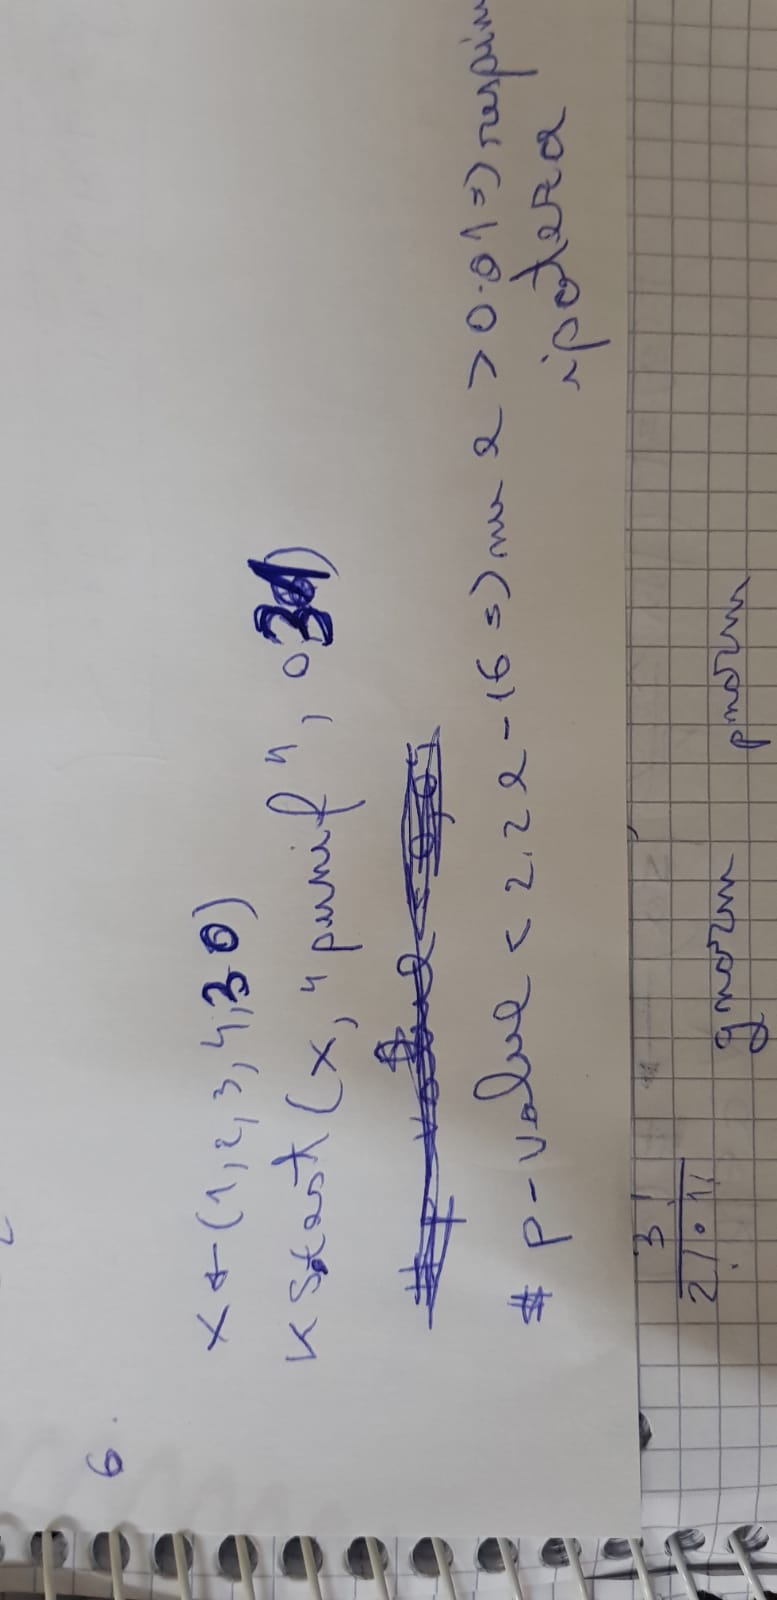 6.
x ← (1, 2, 3, 4, 30)
KS.test (x, "punif", 0 31)
# p-value < 0,05
# p-value < 2.2e-16 => nu e > 0.01 => respin
ipoteza
3!
2! • 1!
qnorm pnorm